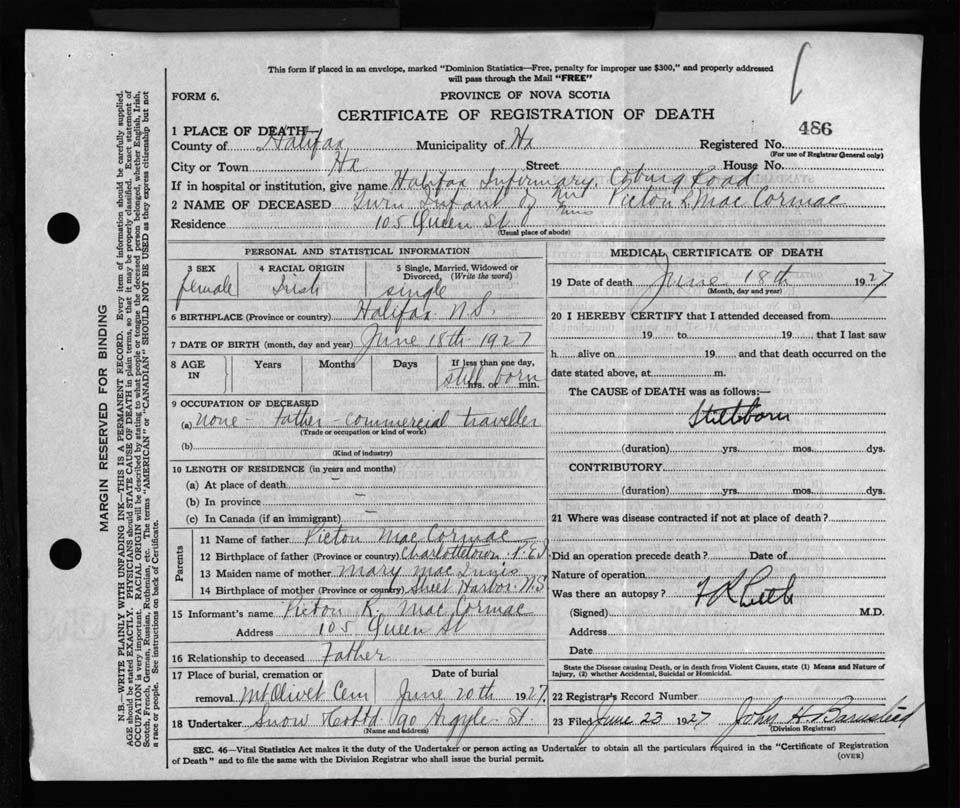 This form if placed in an envelope, marked "Dominion Statistics—Free, penalty for improper use $300," and properly addressed
will pass through the Mail "FREE"
FORM 6.
PROVINCE OF NOVA SCOTIA
CERTIFICATE OF REGISTRATION OF DEATH
486
1 PLACE OF DEATH—
County of Halifax Municipality of Hx Registered No.
(For use of Registrar General only)
City or Town Hx Street House No.
If in hospital or institution, give name Halifax Infirmary, Coburg Road
2 NAME OF DECEASED Twin Infant of Mrs Victor K Mac Cormac
Residence 105 Queen St
(Usual place of abode)
PERSONAL AND STATISTICAL INFORMATION
3 SEX 4 RACIAL ORIGIN 5 Single, Married, Widowed or Divorced, (Write the word)
female Irish single
6 BIRTHPLACE (Province or country) Halifax N.S.
7 DATE OF BIRTH (month, day and year) June 18th 1927
8 AGE IN Years Months Days If less than one day,
still born hrs. or min.
9 OCCUPATION OF DECEASED
(a) none - Father - commercial traveller
(Trade or occupation or kind of work)
(b)
(Kind of industry)
10 LENGTH OF RESIDENCE (in years and months)
(a) At place of death —
(b) In province —
(c) In Canada (if an immigrant) —
Parents
11 Name of father Victor Mac Cormac
12 Birthplace of father (Province or country) Charlottetown P.E.I
13 Maiden name of mother Mary Mac Innis
14 Birthplace of mother (Province or country) Sheet Harbor N.S
15 Informant's name Victor K. Mac Cormac
Address 105 Queen St
16 Relationship to deceased Father
17 Place of burial, cremation or Date of burial
removal Mt Olivet Cem June 20th 1927
18 Undertaker Snow & Co Ltd 90 Argyle St.
(Name and address)
MEDICAL CERTIFICATE OF DEATH
19 Date of death June 18th 1927
(Month, day and year)
20 I HEREBY CERTIFY that I attended deceased from
19 to 19, that I last saw
h alive on 19 and that death occurred on the
date stated above, at m.
The CAUSE OF DEATH was as follows:—
Stillborn
(duration) yrs. mos. dys.
CONTRIBUTORY
(duration) yrs. mos. dys.
21 Where was disease contracted if not at place of death?
Did an operation precede death? Date of
Nature of operation
Was there an autopsy?
(Signed) M.D.
Address
Date
State the Disease causing Death, or in death from Violent Causes, state (1) Means and Nature of
Injury, (2) whether Accidental, Suicidal or Homicidal.
22 Registrar's Record Number
23 Filed June 23 1927 John H. Barnstead
(Division Registrar)
SEC. 46—Vital Statistics Act makes it the duty of the Undertaker or person acting as Undertaker to obtain all the particulars required in the "Certificate of Registration
of Death" and to file the same with the Division Registrar who shall issue the burial permit.
(OVER)
MARGIN RESERVED FOR BINDING
N.B.—WRITE PLAINLY WITH UNFADING INK—THIS IS A PERMANENT RECORD. Every item of information should be carefully supplied.
AGE should be stated EXACTLY. PHYSICIANS should STATE CAUSE OF DEATH in plain terms, so that it may be properly classified. Exact statement of
OCCUPATION is very important. RACIAL ORIGIN will be described by stating to what people or tongue the deceased person belonged, whether English, Irish,
Scotch, French, German, Russian, Ruthenian, etc. The terms "AMERICAN" or "CANADIAN" SHOULD NOT BE USED as they express citizenship but not
a race or people. See instructions on back of Certificate.